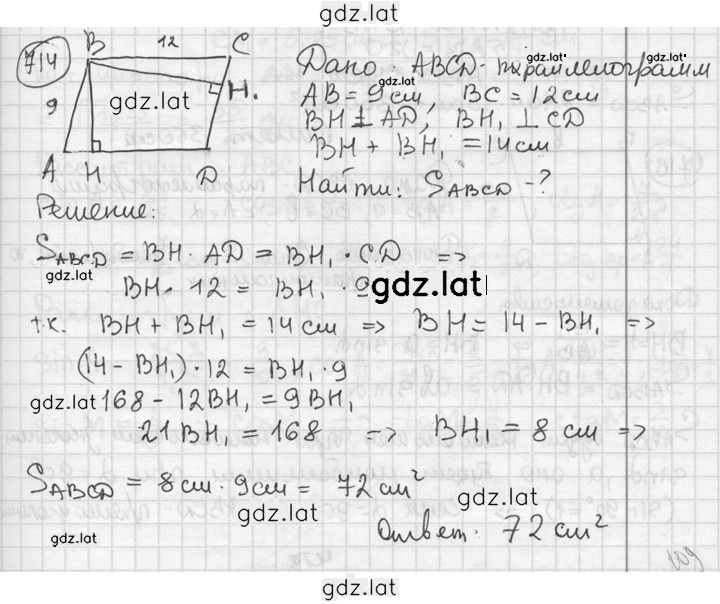 gdz.lat
714
B 12 C
Дано: ABCD - параллелограмм
gdz.lat
H₁
9
AB = 9см BC = 12см
BH ⊥ AD, BH₁ ⊥ CD
BH + BH₁ = 14см
A H D
Найти: S_ABCD - ?
Решение:
S_ABCD = BH · AD = BH₁ · CD =>
gdz.lat
BH · 12 = BH₁ · 9
gdz.lat
т.к. BH + BH₁ = 14 см => BH = 14 - BH₁ =>
(14 - BH₁) · 12 = BH₁ · 9
gdz.lat 168 - 12BH₁ = 9BH₁
21BH₁ = 168 => BH₁ = 8 см =>
S_ABCD = 8 см · 9 см = 72 см²
gdz.lat
gdz.lat
Ответ: 72 см²
gdz.lat
109
gdz.lat